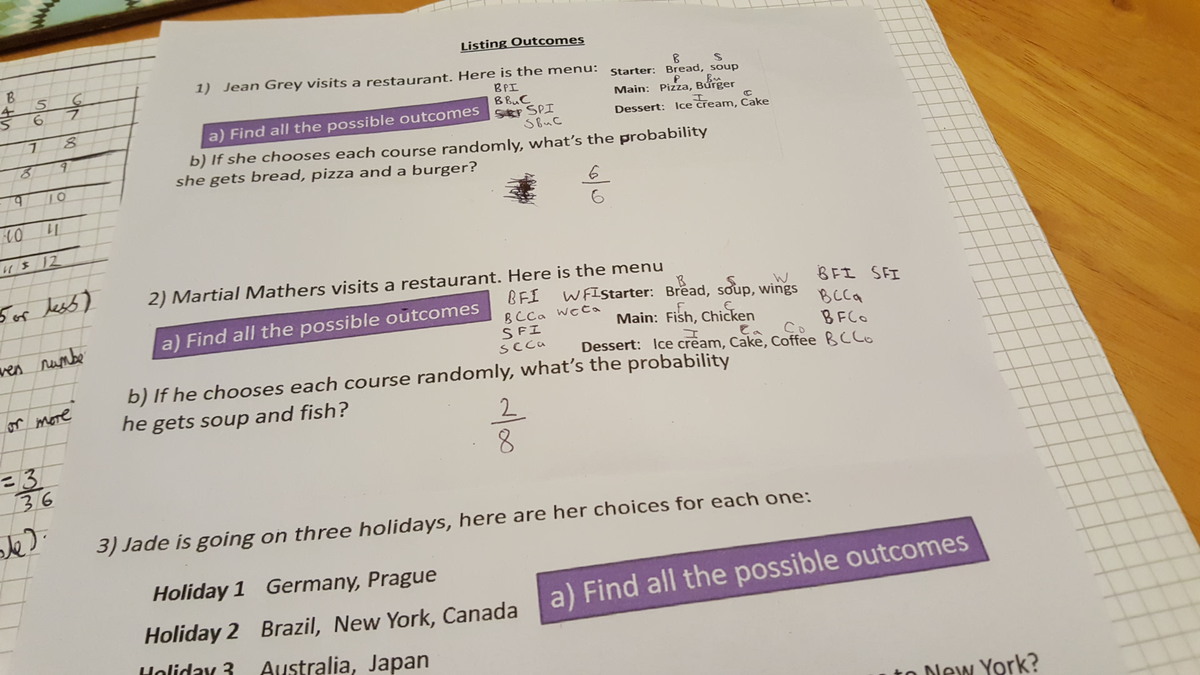 Listing Outcomes
1) Jean Grey visits a restaurant. Here is the menu:
B S
Starter: Bread, soup
P Bu
Main: Pizza, Burger
I C
Dessert: Ice cream, Cake
a) Find all the possible outcomes
BPI
BBuC
SPI
SBuC
b) If she chooses each course randomly, what's the probability
she gets bread, pizza and a burger?
6
6
2) Martial Mathers visits a restaurant. Here is the menu
B S W
Starter: Bread, soup, wings
F C
Main: Fish, Chicken
I Ca Co
Dessert: Ice cream, Cake, Coffee
a) Find all the possible outcomes
BFI WFI
BCCa WCCa
SFI
SCCa
BFI SFI
BCCa
BFCo
BCCo
b) If he chooses each course randomly, what's the probability
he gets soup and fish?
2
8
3) Jade is going on three holidays, here are her choices for each one:
Holiday 1 Germany, Prague
Holiday 2 Brazil, New York, Canada
Holiday 3 Australia, Japan
a) Find all the possible outcomes
to New York?
B
4 5 6
5 6 7
7 8
8 9
9 10
10 11
12
5 or less)
or more
= 3
36